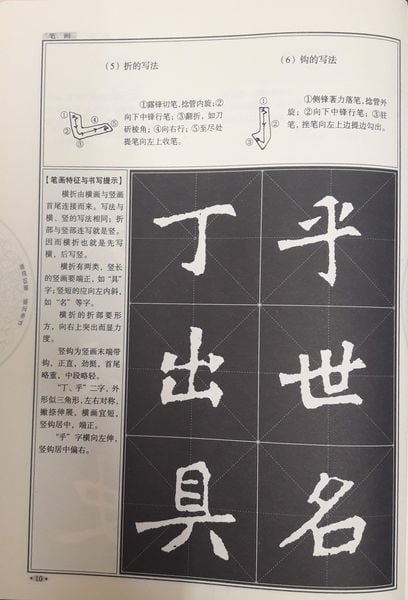 笔 画
（5）折的写法
①露锋切笔，捻管内旋；②
向下中锋行笔；③翻折，如刀
斫棱角；④向右行；⑤至尽处
提笔向左上收笔。
（6）钩的写法
①侧锋著力落笔，捻管外
旋；②向下中锋行笔；③驻
笔，挫笔向左上边提边勾出。
①
②
③
④
⑤
①
②
③
【笔画特征与书写提示】
横折由横画与竖画
首尾连接而来。写法与
横、竖的写法相同；折
部与竖部连写就是竖。
因而横折也就是先写
横，后写竖。
横折有两类，竖长
的竖画要端正，如“具”
字；竖短的应向左内斜，
如“名”等字。
横折的折部要形
方，向右上突出而显力
度。
竖钩为竖画末端带
钩，正直，劲挺，首尾
略重，中段略轻。
“丁、乎”二字，外
形似三角形，左右对称，
撇捺伸展，横画宜短，
竖钩居中，端正。
“乎”字横向左伸，
竖钩居中偏右。
丁 乎
出 世
具 名
10